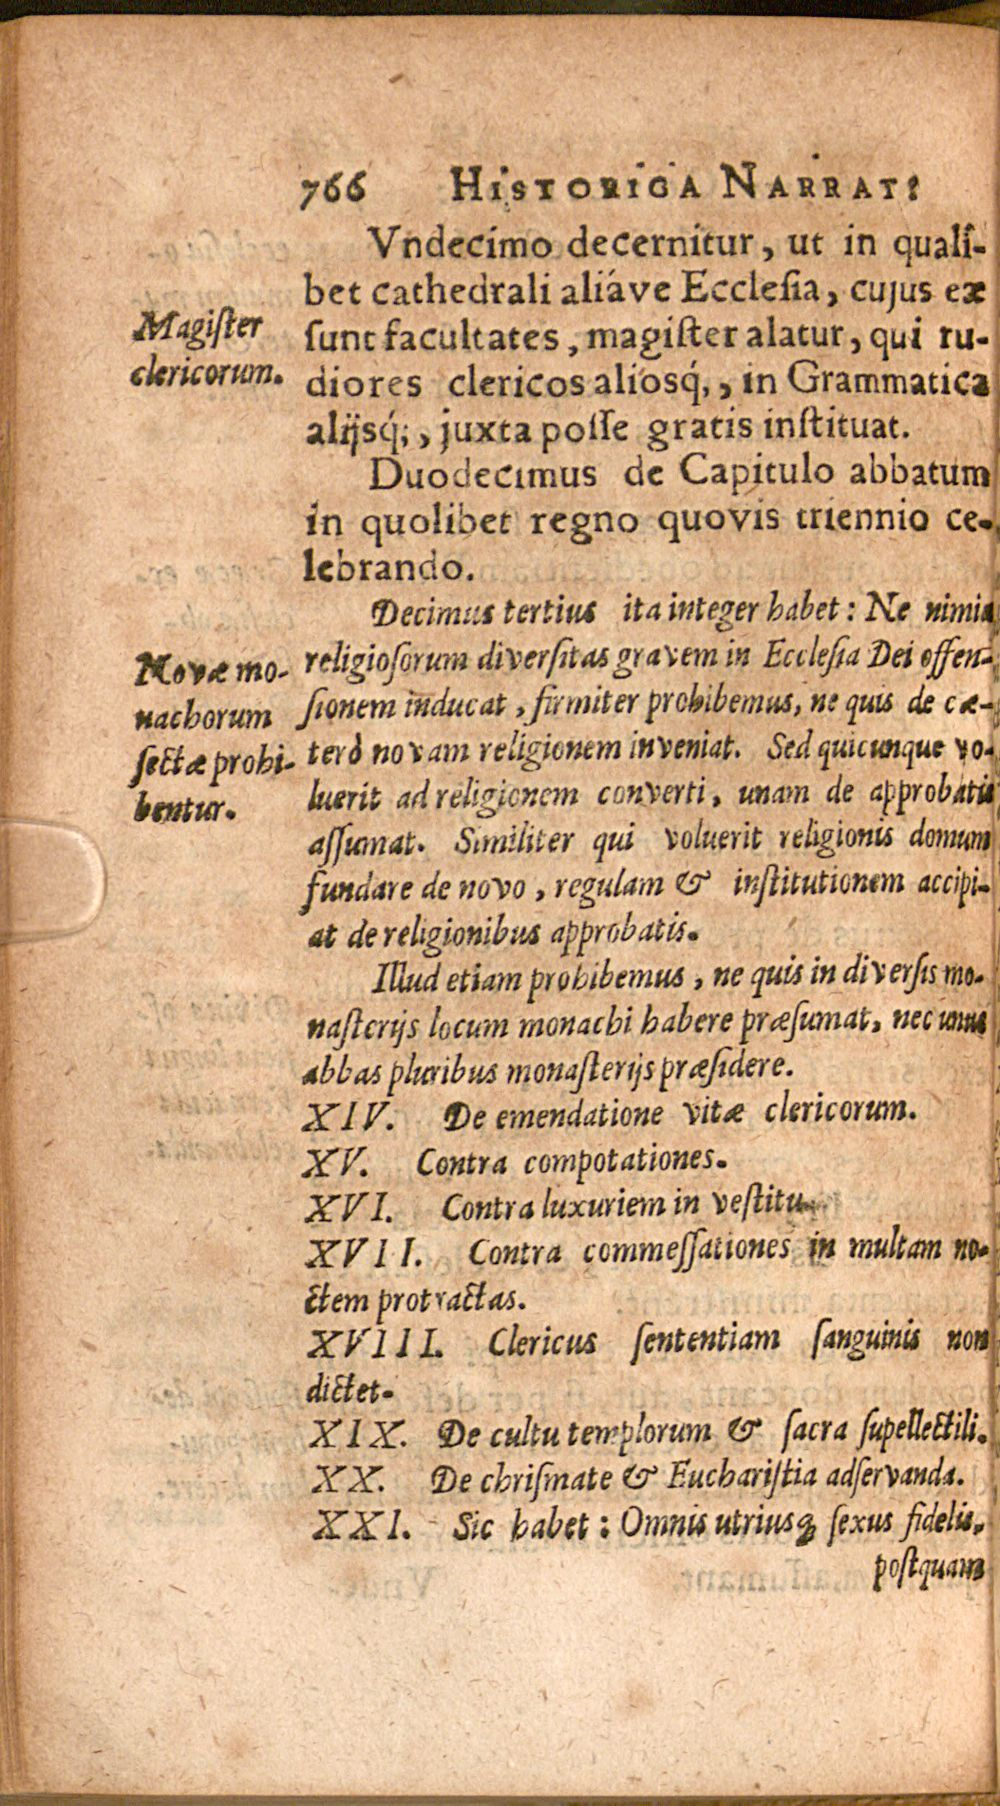 766 HISTORICA NARRAT:
Vndecimo decernitur, ut in quali-
bet cathedrali aliáve Ecclesia, cujus eæ
Magister
clericorum.
sunt facultates, magister alatur, qui ru-
diores clericos aliosq́;, in Grammatica
alijsq́;, juxta posse gratis instituat.
Duodecimus de Capitulo abbatum
in quolibet regno quovis triennio ce-
lebrando.
Decimus tertius ita integer habet: Ne nimia
Novæ mo-
nachorum
sectæ prohi-
bentur.
religiosorum diversitas gravem in Ecclesia Dei offen-
sionem inducat, firmiter prohibemus, ne quis de cæ-
terò novam religionem inveniat. Sed quicunque vo-
luerit ad religionem converti, unam de approbatis
assumat. Similiter qui voluerit religionis domum
fundare de novo, regulam & institutionem accipi-
at de religionibus approbatis.
Illud etiam prohibemus, ne quis in diversis mo-
nasterijs locum monachi habere præsumat, nec unus
abbas pluribus monasterijs præsidere.
XIV. De emendatione vitæ clericorum.
XV. Contra compotationes.
XVI. Contra luxuriem in vestitu.
XVII. Contra commessationes in multam no-
ctem protractas.
XVIII. Clericus sententiam sanguinis non
dictet.
XIX. De cultu templorum & sacra supellectili.
XX. De chrismate & Eucharistia adservanda.
XXI. Sic habet: Omnis utriusq; sexus fidelis,
postquam